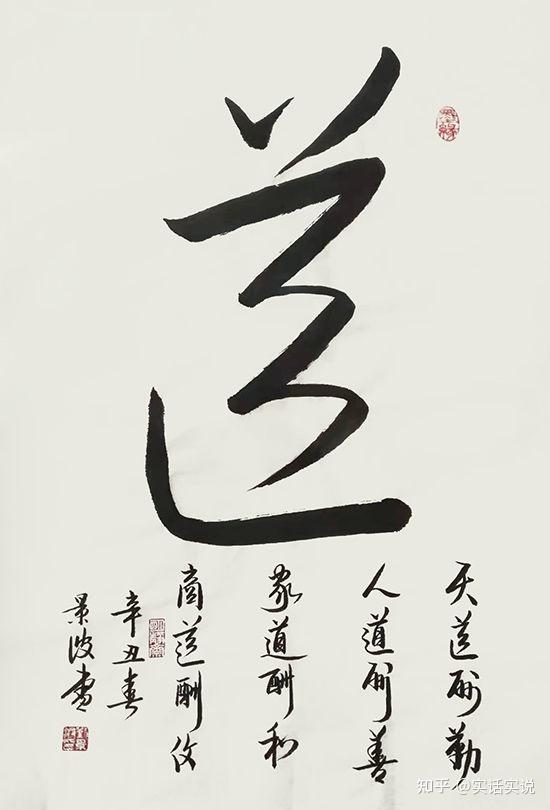 道
天道酬勤
人道酬善
家道酬和
商道酬信
辛丑春
景波書
知乎 @实话实说